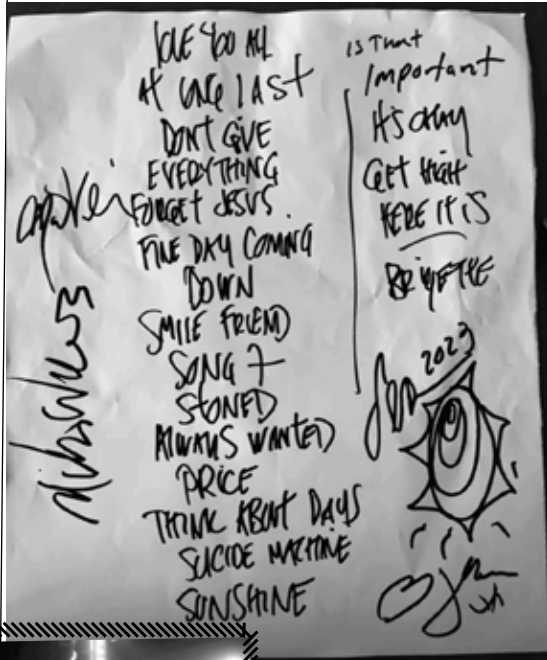 LOVE YOU ALL
AT LONG LAST
DON'T GIVE
EVERYTHING
FORGET JESUS.
FINE DAY COMING
DOWN
SMILE FRIEND
SONG 7
STONED
ALWAYS WANTED
PRICE
THINK ABOUT DAYS
SUICIDE MACHINE
SUNSHINE
IS THAT
Important
It's okay
GET HIGH
HERE IT IS
2023